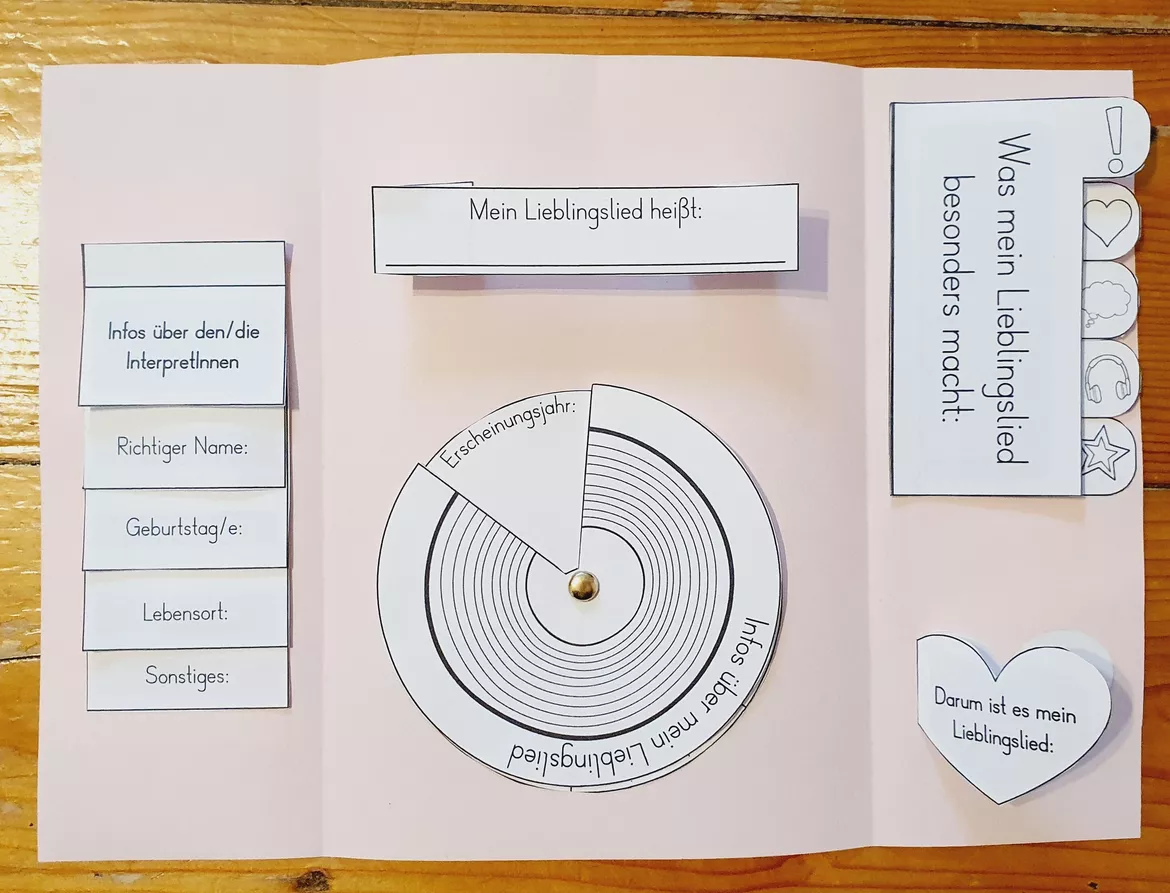 Infos über den/die
InterpretInnen
Richtiger Name:
Geburtstag/e:
Lebensort:
Sonstiges:
Mein Lieblingslied heißt:
Erscheinungsjahr:
Infos über mein Lieblingslied
Was mein Lieblingslied
besonders macht:
Darum ist es mein
Lieblingslied: